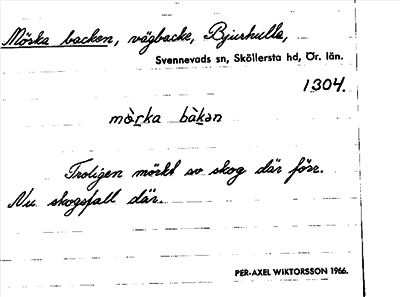 Mörka backen, vägbacke, Bjurhulla,
Svennevads sn, Sköllersta hd, Ör. län.
1304.
mö̀rka bàkən
Troligen mörkt av skog där förr.
Nu skogsfall där.
PER-AXEL WIKTORSSON 1966.